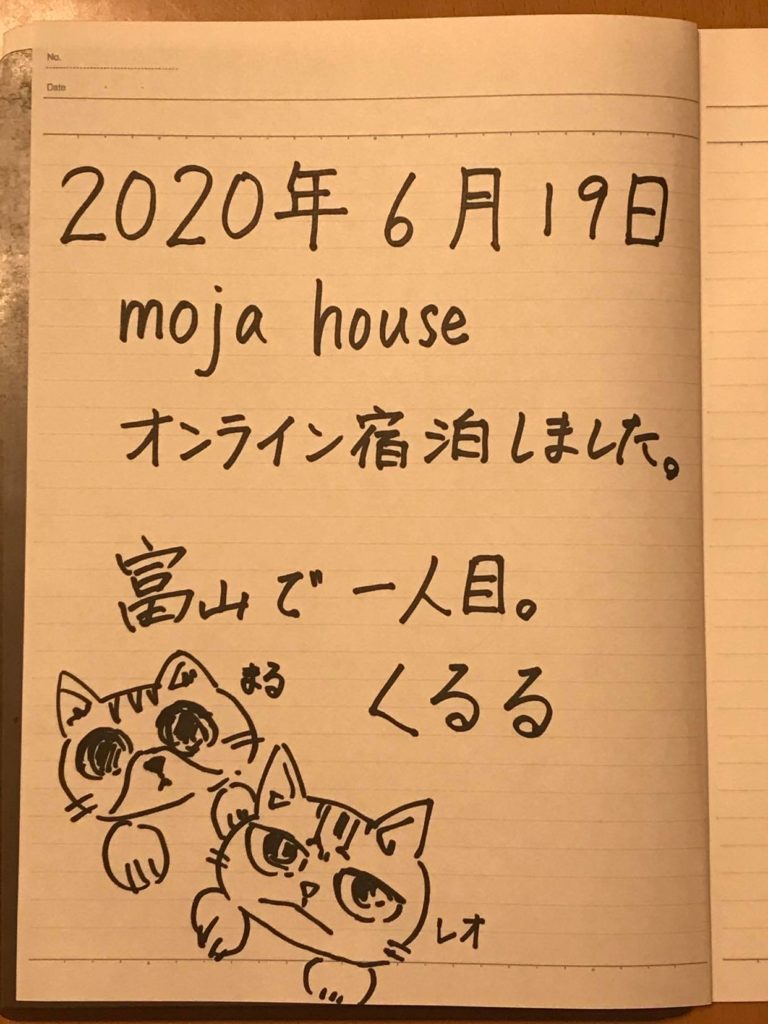 No.
Date
2020年6月19日
moja house
オンライン宿泊しました。
富山で一人目。
まる
くるる
レオ